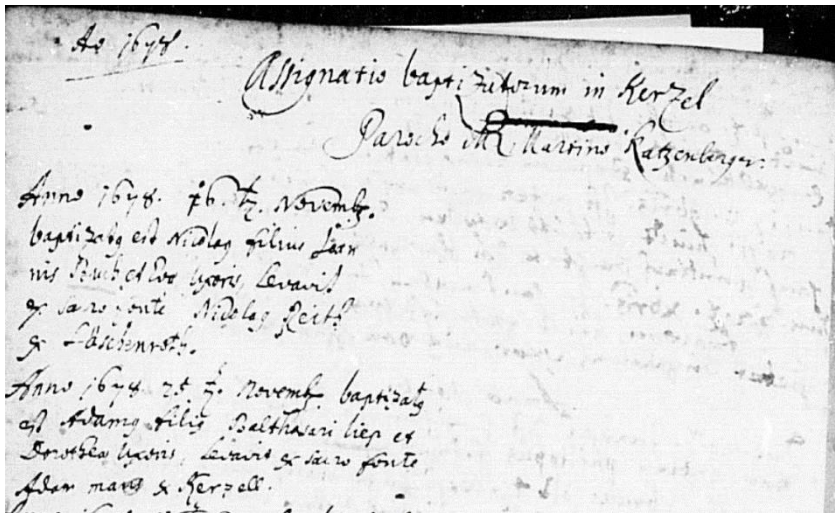 Ao 1678.
Assignatio baptizatorum in Kerzel
Parocho M. Martino Katzenberger.
Anno 1678. 16. Novemb.
baptizatq est Nicolaq filius Joan
nis et Eva uxoris, Levavit
ex sacro fonte Nicolaq Reith
ex
Anno 1678. 25 Novemb. baptizatq
est Adamq filiq Balthasari liep et
Dorothea uxoris, Levavit ex sacro fonte
Adam ex Kerzell.